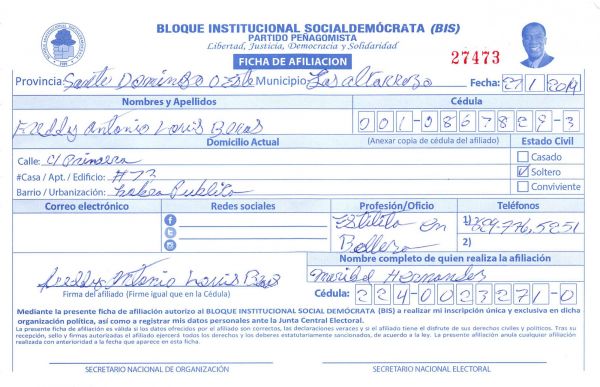 BLOQUE INSTITUCIONAL SOCIALDEMÓCRATA (BIS)
PARTIDO PEÑAGOMISTA
Libertad, Justicia, Democracia y Solidaridad
FICHA DE AFILIACION
27473
Provincia: Santo Domingo Oeste Municipio: Fecha: 27/1/2019
Nombres y Apellidos Cédula
Freddy Antonio 001-9867829-3
Domicilio Actual (Anexar copia de cédula del afiliado) Estado Civil
Calle: C/ Primera Casado
#Casa / Apt. / Edificio: #73 Soltero
Barrio / Urbanización: Conviviente
Correo electrónico Redes sociales Profesión/Oficio Teléfonos
Estilita en 1) 829-776,5251
Belleza 2)
Nombre completo de quien realiza la afiliación
Freddy Antonio Maribel Hernandez
Firma del afiliado (Firme igual que en la Cédula) Cédula: 224-0003271-0
Mediante la presente ficha de afiliación autorizo al BLOQUE INSTITUCIONAL SOCIAL DEMÓCRATA (BIS) a realizar mi inscripción única y exclusiva en dicha
organización política, así como a registrar mis datos personales ante la Junta Central Electoral.
La presente ficha de afiliación es válida si los datos ofrecidos por el afiliado son correctos, las declaraciones veraces y si el afiliado tiene el disfrute de sus derechos civiles y políticos. Tras su
recepción, sello y firmas autorizadas el afiliado ejercerá todos los derechos y los deberes estatutariamente sancionados, de acuerdo a la ley. La presente afiliación anula cualquier afiliación
realizada con anterioridad a la fecha que aparece en esta ficha.
SECRETARIO NACIONAL DE ORGANIZACIÓN SECRETARIO NACIONAL ELECTORAL